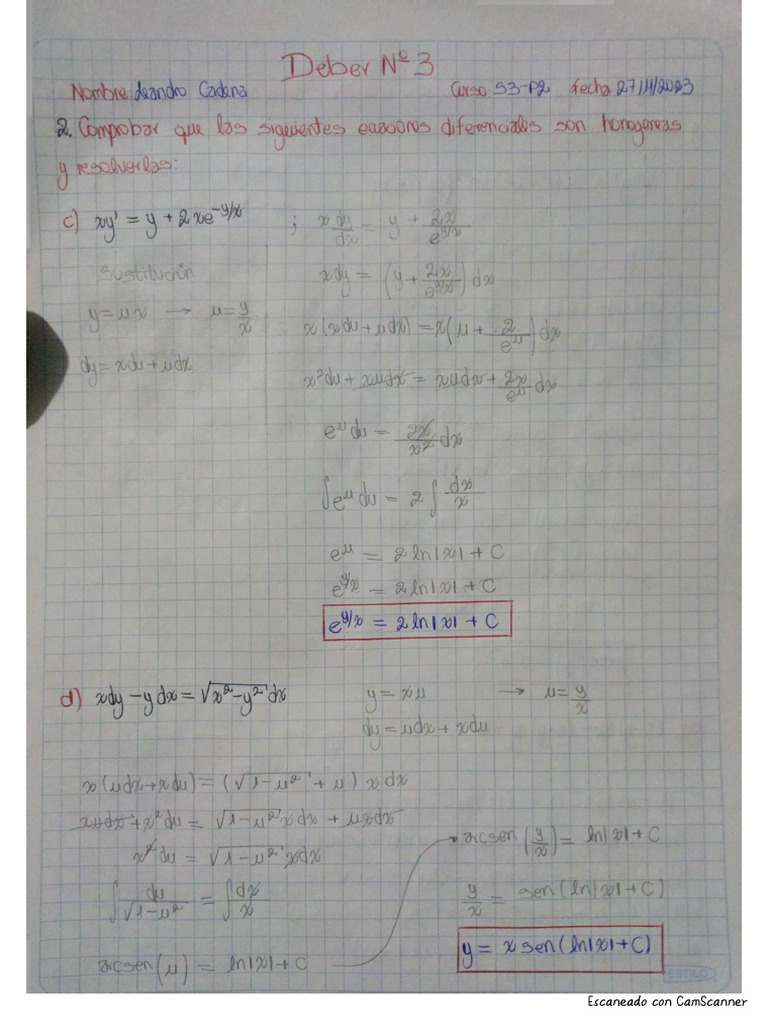 Deber Nº 3
Nombre: Leandro Cadena Curso: S3-P2 fecha 27/11/2023
2. Comprobar que las siguientes eaciones diferenciales son homogeneas
y resolverlas:
c) xy' = y + 2xe^{-y/x} ; x dy/dx = y + 2x/e^{y/x}
sustitución
y = μx → μ = y/x
dy = xdμ + μdx
xdy = (y + 2x/e^{y/x}) dx
x(xdμ + μdx) = x(μ + 2/e^μ) dx
x²dμ + xμdx = xμdx + 2x/e^μ dx
e^μ dμ = 2x/x² dx
∫e^μ dμ = 2∫ dx/x
e^μ = 2ln|x| + C
e^{y/x} = 2ln|x| + C
e^{y/x} = 2ln|x| + C
d) xdy - ydx = √(x²-y²) dx
y = xμ → μ = y/x
dy = μdx + xdμ
x(μdx + xdμ) = (√(1-μ²) + μ) x dx
xμdx + x²dμ = √(1-μ²) xdx + μxdx
x²dμ = √(1-μ²) xdx
∫ dμ/√(1-μ²) = ∫ dx/x
arcsen(μ) = ln|x| + C
arcsen(y/x) = ln|x| + C
y/x = sen(ln|x| + C)
y = x sen(ln|x| + C)
ESTILO
Escaneado con CamScanner